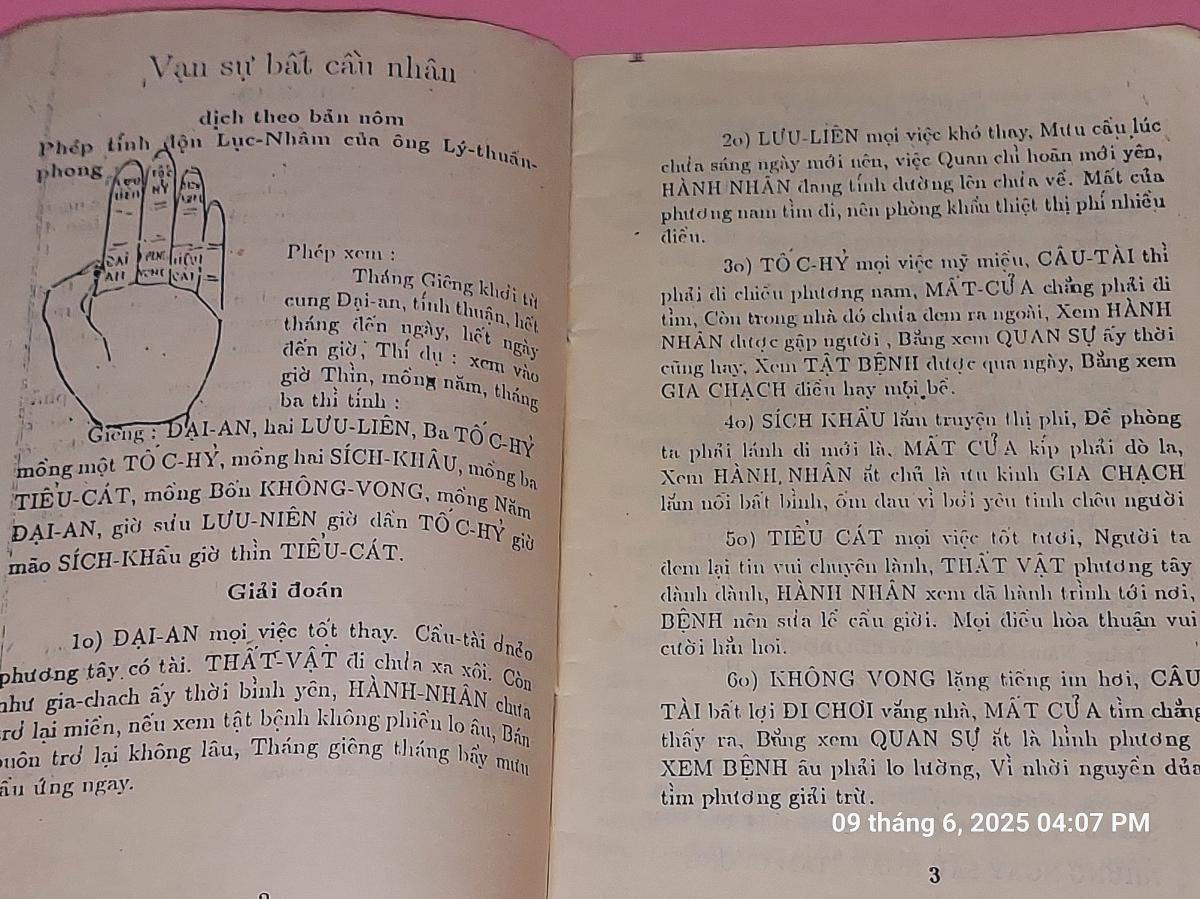 Vạn sự bất cầu nhân
dịch theo bản nôm
Phép tính độn Lục-Nhâm của ông Lý-thuấn-
phong
LƯU LIÊN
TỐC HỶ
ĐẠI AN
Phép xem :
Tháng Giêng khởi từ
cung Đại-an, tính thuận, hết
tháng đến ngày, hết ngày
đến giờ, Thí dụ : xem vào
giờ Thìn, mồng năm, tháng
ba thì tính :
Giêng : ĐẠI-AN, hai LƯU-LIÊN, Ba TỐC-HỶ
mồng một TỐC-HỶ, mồng hai SÍCH-KHẨU, mồng ba
TIỂU-CÁT, mồng Bốn KHÔNG-VONG, mồng Năm
ĐẠI-AN, giờ sửu LƯU-NIÊN giờ dần TỐC-HỶ giờ
mão SÍCH-KHẩu giờ thìn TIỂU-CÁT.
Giải đoán
1o) ĐẠI-AN mọi việc tốt thay. Cầu-tài dnẻo
phương tây có tài. THẤT-VẬT đi chửa xa xôi. Còn
như gia-chach ấy thời bình yên, HÀNH-NHÂN chưa
trở lại miền, nếu xem tật bệnh không phiền lo âu, Bán
buôn trở lại không lâu, Tháng giêng tháng bẩy mưu
cầu ứng ngay.
2o) LƯU-LIÊN mọi việc khó thay, Mưu cầu lúc
chửa sáng ngày mới nên, việc Quan chỉ hoãn mới yên,
HÀNH NHÂN đang tính đường lên chửa về. Mất của
phương nam tìm đi, nên phòng khẩu thiệt thị phí nhiều
điều.
3o) TỐC-HỶ mọi việc mỹ miều, CẦU-TÀI thì
phải đi chiều phương nam, MẤT-CỦA chẳng phải đi
tìm, Còn trong nhà đó chửa đem ra ngoài, Xem HÀNH
NHÂN được gặp người , Bằng xem QUAN SỰ ấy thời
cũng hay, Xem TẬT BỆNH được qua ngày, Bằng xem
GIA CHẠCH điều hay mọi bề.
4o) SÍCH KHẨU lắm truyện thị phi, Đề phòng
ta phải lánh đi mới là, MẤT CỦA kíp phải dò la,
Xem HÀNH, NHÂN ắt chủ là ưu kinh GIA CHẠCH
lắm nỗi bất bình, ốm đau vì bởi yêu tinh chêu người
5o) TIỂU CÁT mọi việc tốt tươi, Người ta
đem lại tin vui chuyện lành, THẤT VẬT phương tây
dành dành, HÀNH NHÂN xem đã hành trình tới nơi,
BỆNH nên sửa lễ cầu giời. Mọi điều hòa thuận vui
cười hẳn hoi.
6o) KHÔNG VONG lặng tiếng im hơi, CẦU
TÀI bất lợi ĐI CHƠI vắng nhà, MẤT CỦA tìm chẳng
thấy ra, Bằng xem QUAN SỰ ắt là hình phương
XEM BỆNH âu phải lo lường, Vì nhời nguyền dủa
tìm phương giải trừ.
09 tháng 6, 2025 04:07 PM
3